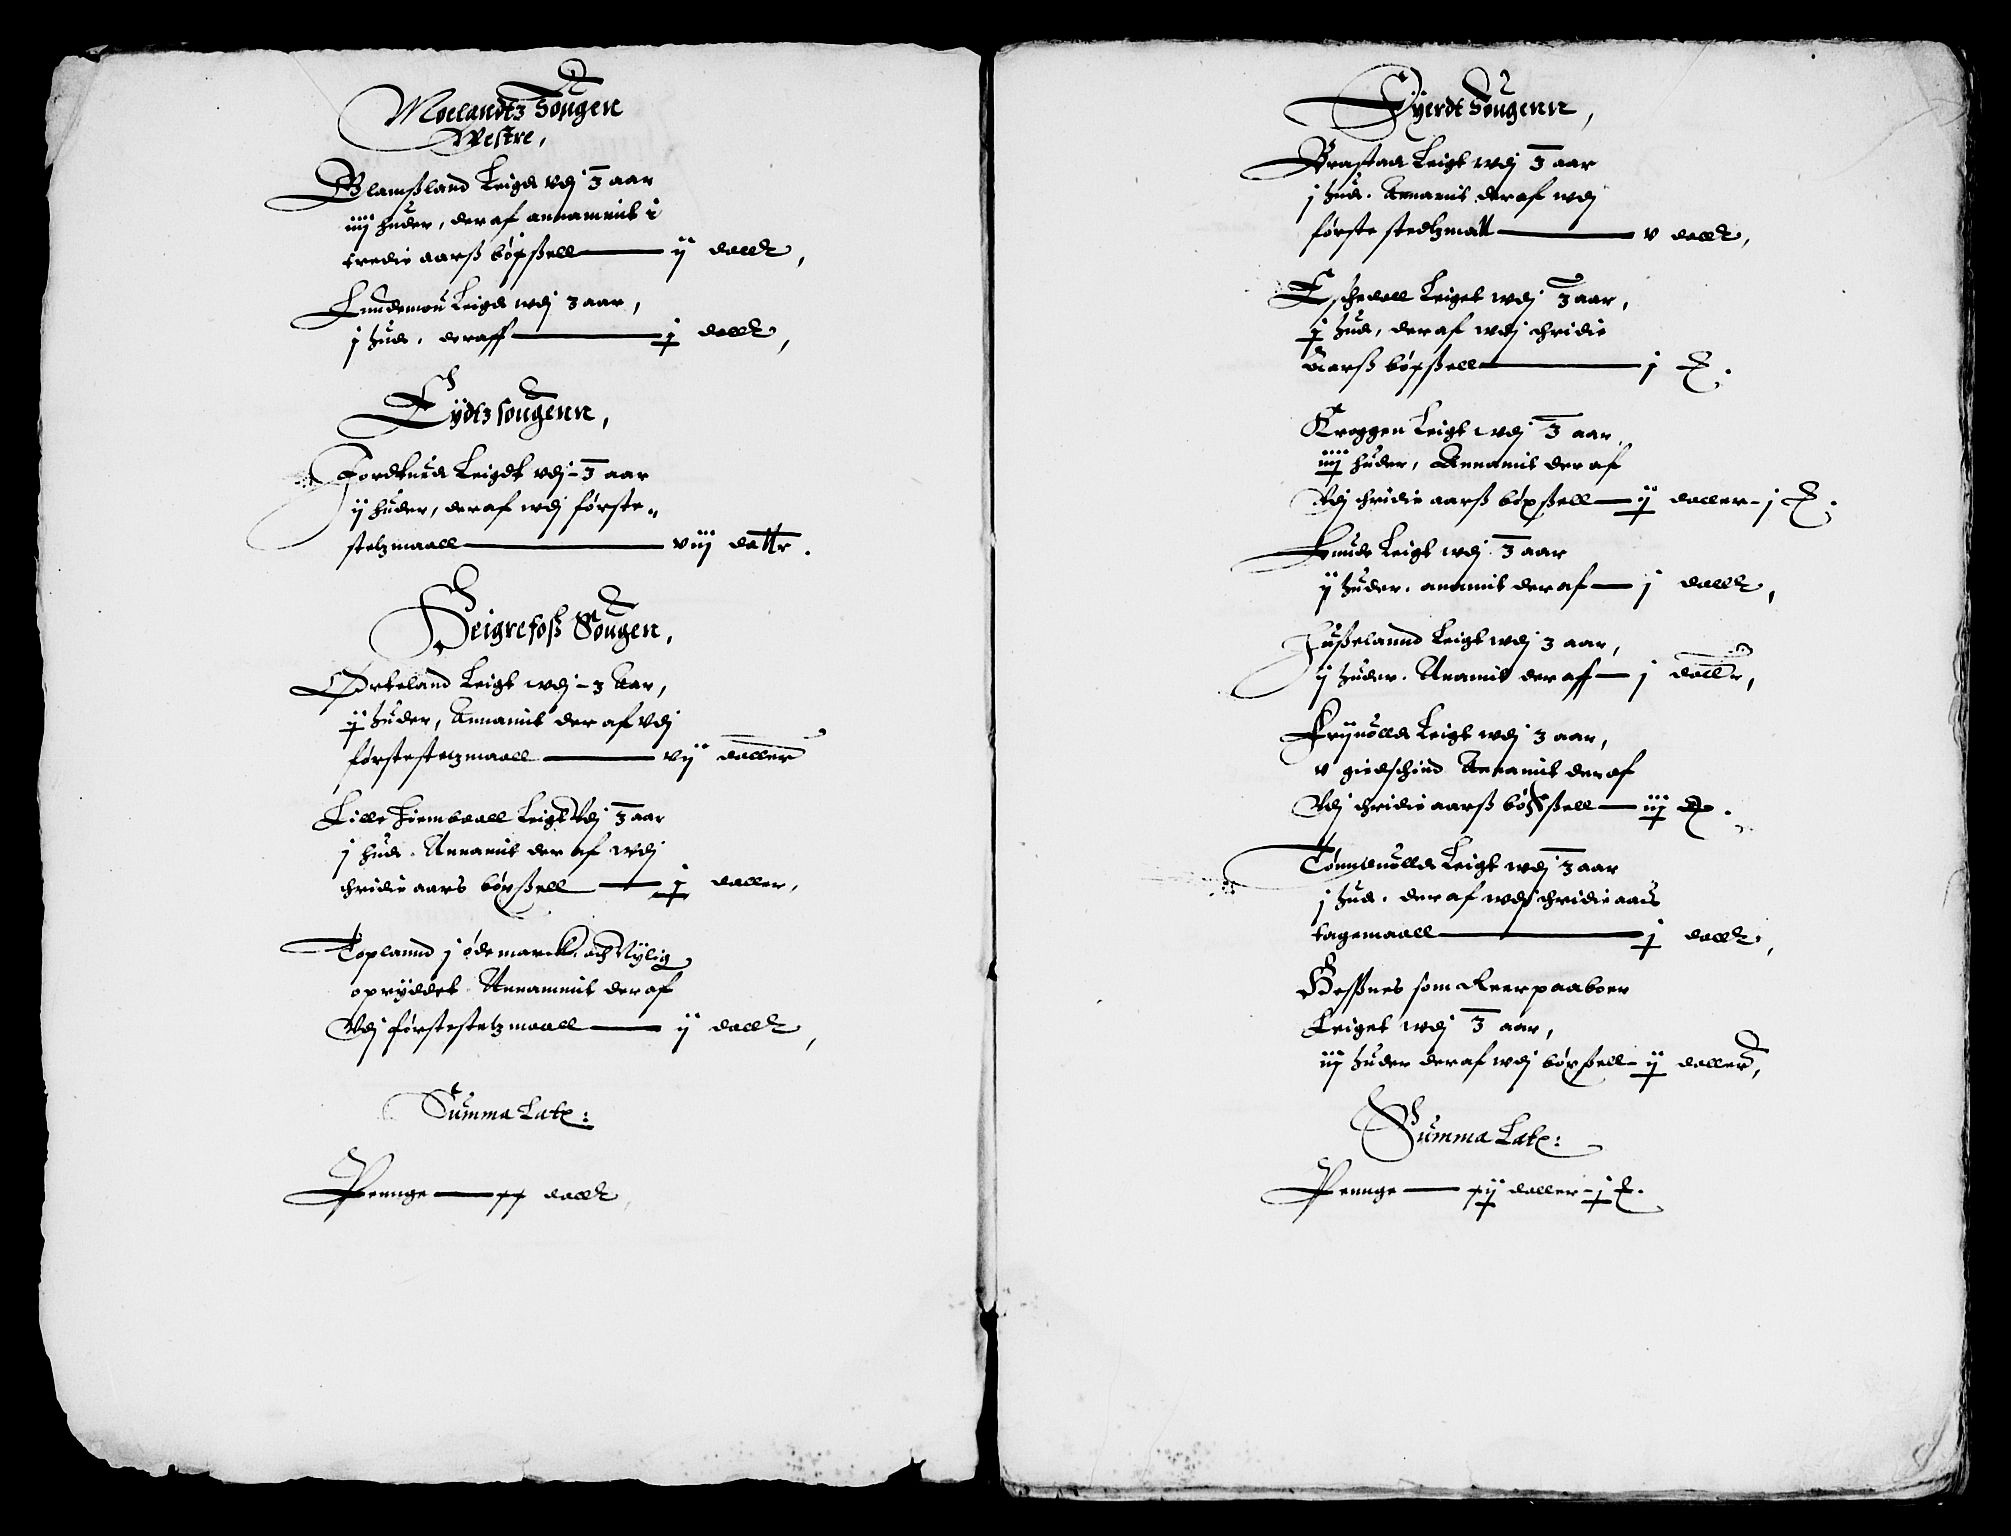 Moelandtz Sougen
Westre,
Blamßland Leigd vdj 3 aar
iiij huder, deraf annammit i
tredie aarß böxßell — ij dallr,
Lundemou Leigd wdj 3 aar,
j hud, deraff — j dallr,
Eydtz sougenn,
Fordknud Leigdt vdj 3 aar
ij huder, deraf wdj første
stelzmaall — viij dallr.
Heigrefoß Sougen,
Ørteland Leigt wdj 3 Aar,
ij huder, Annamit der af vdj
førstestelzmaall — vij daller
Lille Leigt Vdj 3 aar
j hud. Annamit der af wdj
thridie aars böxßell — j daller,
Toplannd j ødemarck, och Nylig
opryddet Annammit der af
Vdj førstestelzmaall — ij dallr,
Summa Late:
Pennge — xx dallr
Eyerdt Sougenn,
Prastad Leigt wdj 3 aar
j hud. Annamit deraf wdj
første stedtzmall — v dallr,
Eschedall Leiget wdj 3 aar,
j hud, deraf wdj thridie
Aarß böxßell — j
Kroggen Leigt wdj 3 aar,
iiij huder, Annamit deraf
Vdj thridie aarß böxßell — ij daller — j
Leigt wdj 3 aar
ij huder. anamit deraf — j dallr,
Fußelannd Leigt wdj 3 aar,
ij huder. Anamit deraff — j dallr,
Leigt wdj 3 aar,
v giedschind Annamit deraf
Vdj thridie aarß böxßell — iij
Leigt wdj 3 aar
j hud. deraf wdj thridie aars
tagemaall — j dallr,
Heßnes som Reerpaaboer
Leiget wdj 3 aar,
iij huder deraf wdj böxßell — ij daller,
Summa Late:
Pennge — xij daller — j